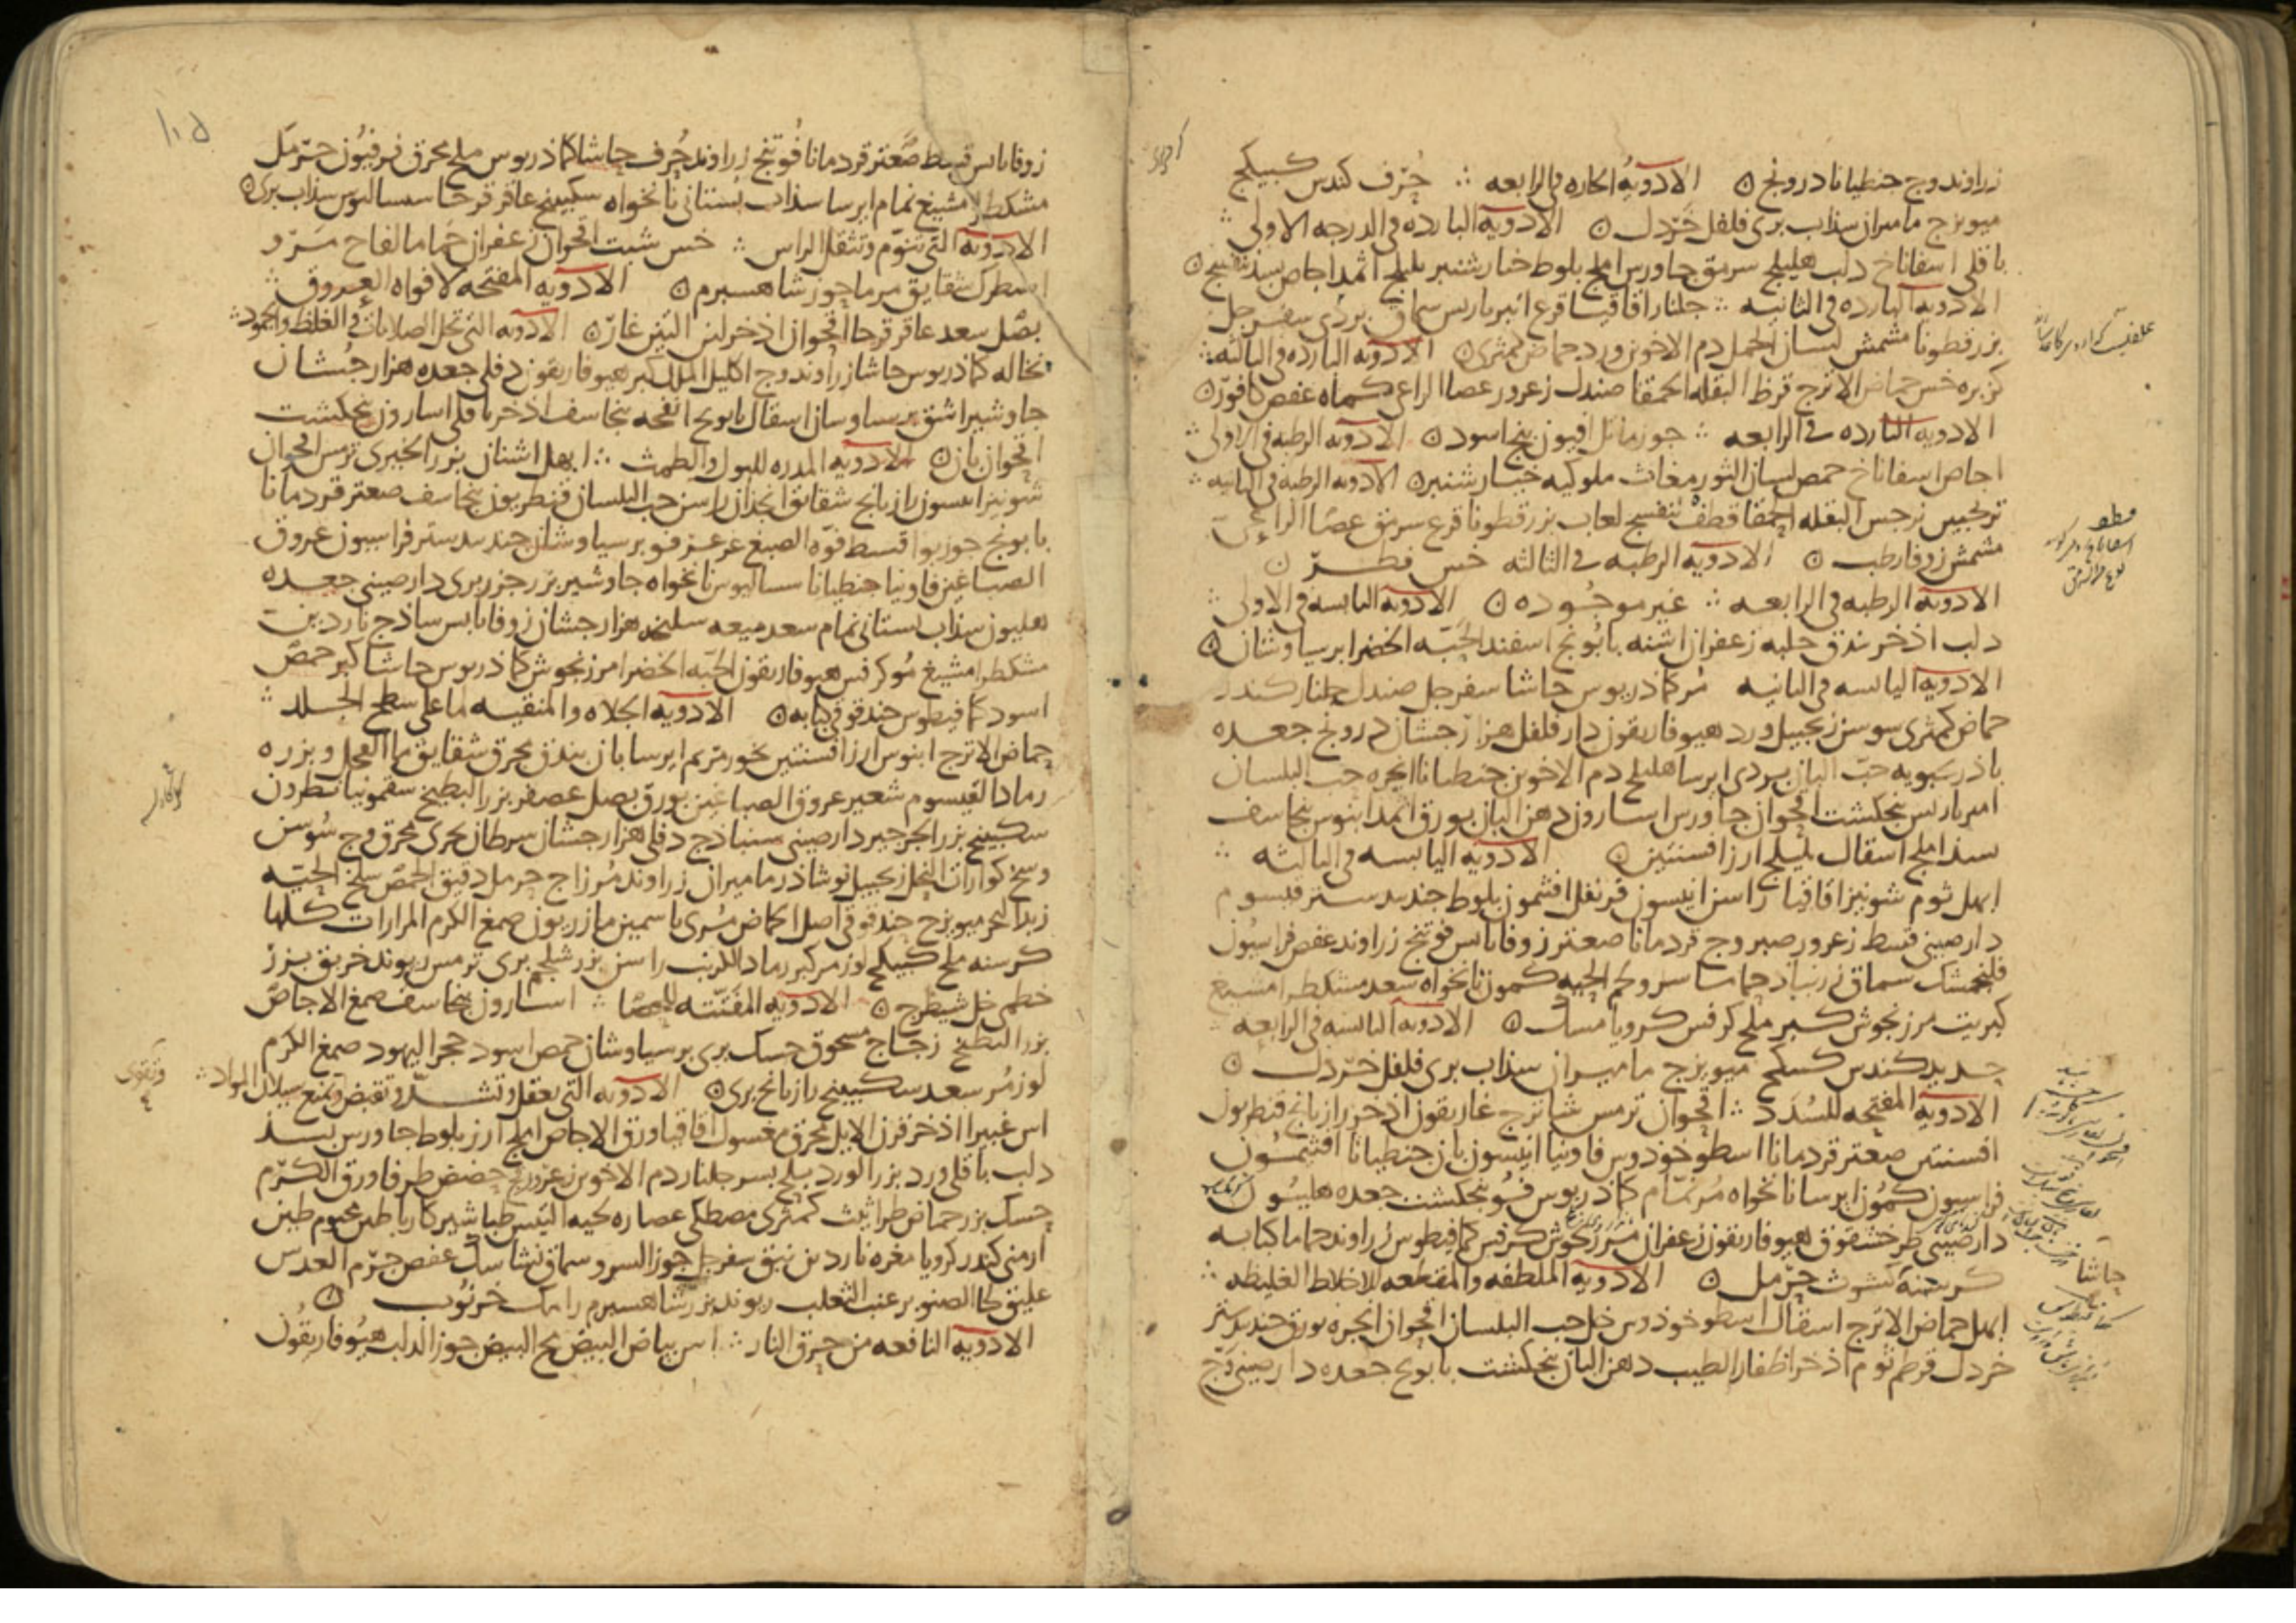 زراوند وج جنطيانا درونج ۞ الادوية الحاره في الرابعه ∴ حُرف كندس كبيكج
ميوبزج ماميران سذاب بري فلفل خَردل ۞ الادوية البارده في الدرجه الاولى ∴
باقلى اسفاناخ دلب هليلج سرمق جاورس املج بلوط خيارشنبر بليلج اثمد اجاص
الادوية البارده في الثانيه ∴ جلنار اقاقيا قرع انبرباريس سماق بردي سفرجل
بزرقطونا مشمش لسان الحمل دم الاخوين ورد حماض كمثرى ۞ الادويه البارده في الثالثه ∴
كزبره خس حماض الاترج قرظ البقله الحمقا صندل زعرور عصا الراعي كماه عفص كافور ۞
الادويه البارده في الرابعه ∴ جوز ماثل افيون بنج اسود ۞ الادويه الرطبه في الاولى ∴
اجاص اسفاناخ حمص لسان الثور مغاث ملوكيه خيارشنبر ۞ الادويه الرطبه في الثانيه ∴
ترنجبين نرجس البقله الحمقا قطف بنفسج لعاب بزرقطونا قرع سرمق عصا الراعي
مشمش زوفا رطب ۞ الادويه الرطبه في الثالثه خس فطر ۞
الادويه الرطبه في الرابعه ∴ غير موجُوده ۞ الادويه اليابسه في الاولى ∴
دلب اذخر بندق حلبه زعفران اشنه بابُونج اسفند الحَبّه الخضرا برسياوشان ۞
الادويه اليابسه في الثانيه مُر كماذريوس حاشا سفرجل صندل جلنار كندر
حماض كمثرى سوسن زنجبيل ورد هيوفاريقون دارفلفل هزارجشان درونج جعده
باذرنبويه حبّ البان بردي ايرسا هليلج دم الاخوين جنطيانا انجره حب البلسان
امبرباريس بنجنكشت اقحوان جاورس اسارون دهن البان بورق اثمد ابنوس بنجاسف
املج اسقال بليلج ارز افسنتين ۞ الادوية اليابسه في الثالثه ∴
ابهل ثوم شونيز اقاقيا راسن انيسون قرنفل افثيمون بلوط جندبدستر قيسوم
دارصيني قسط زعرور صبر وج قردمانا صعتر زوفا يابس فوتنج زراوند عفص فراسيُون
فلنجمشك سماق زرنباد حماما سرو لحم الحيه كمون نانخواه سعد مشكطرامشيع
كبريت مرزنجوش كبر ملح كرفس كرويا مسك ۞ الادويه اليابسه في الرابعه ∴
حديد كندس كبيكج ميوبزج ماميران سذاب بري فلفل خَردل ۞
الادوية المفتحه للسُدَد ∴ اقحوان ترمس شاترج غاريقون اذخر رازيانج قنطريون
افسنتين صعتر قردمانا اسطوخودوس فاونيا انيسون بان جنطيانا افثيمُون
فراسيون كمُون ايرسا نانخواه مُر نمّام كماذريوس فُو بنجنكشت جعده هليُون
دارصيني طرخشقوق هيوفاريقون زعفران مرزنجوش كرفس كمافيطوس زراوند حماما كبابه
كرسنة كشوث حرمل ۞ الادويه الملطفه والمقطعه للاخلاط الغليظه ∴
ابهل حماض الاترج اسقال اسطوخودوس خل حب البلسان اقحوان انجره بورق جندبدستر
خردل قرطم ثوم اذخر اظفار الطيب دهن البان بنجنكشت بابونج جعده دارصيني وج
حاشا
زوفا يابس قسط صَعتر قردمانا فُوتنج زراوند حُرف حاشا كماذريوس ملح محرق فرفيُون حَرمَل
مشكطرامشيع نمام ايرسا سذاب بُستاني نانخواه سكبينج عاقرقرحا سساليوس سذاب بري ۞
الادوية التي تنوّم وتثقل الراس ∴ خس شبت اقحوان زعفران حماما لفاح سَرو
اسطرك شقايق مر ماحوز شاهسبرم ۞ الادويه المفتحه لافواه العروق ∴
بصَل سعد عاقرقرحا اقحوان اذخر لبن التين غار ۞ الادويه التي تحل الصلابات في الغلظ والجمود ∴
نخاله كماذريوس حاشا زراوند وج اكليل الملك كبر هيوفاريقون دفلى جعده هزارجُشان
جاوشير اشق برسياوسان اسقال بابونج انفحه بنجاسف اذخر باقلى اسارون بنجنكشت
اقحوان بان ۞ الادويه المدره للبول والطمث ∴ ابهل اشنان بزر الخيري ترمس اقحوان
شونيز انيسون رازيانج شقايق انجدان راسن حب البلسان قنطريون بنجاسف صعتر قردمانا
بابونج جوزبوا قسط فوّه الصبغ عرعر فو برسياوشان جندبدستر فراسيون عروق
الصباغين فاونيا جنطيانا سساليوس نانخواه جاوشير بزر جزر بري دارصيني جعده
هليون سذاب بستاني نمام سعد ميعه سليخه هزارجشان زوفا يابس ساذج ناردين
مشكطرامشيغ مُو كرفس هيوفاريقون الحبّه الخضرا مرزنجوش كماذريوس حاشا كبر حمصَ
اسود كمافيطوس حندقوقى كبابه ۞ الادويه الجلاه والمنقيه لما على سطح الجلد ∴
حماض الاترج ابنوس ارز افسنتين بخور مريم ايرسا بان بندق محرق شقايق ما الفجل وبزره
رماد القيسوم شعير عروق الصباغين بورق بصل عصفر بزر البطيخ سقمونيا نطرون
سكبينج بزر الجرجير دارصيني سنباذج دفلى هزارجشان سرطان بحري محرق وج سُوسن
وسخ كوارات النحل زنجبيل نوشاذر ماميران زراوند مُر زاج حرمل دقيق الحمص سلخ الحيّه
زبد البحر ميوبزج حندقوقى اصل الحماض مُري ياسمين مازريون صمغ الكرم المرارات كلها
كرسنه ملح كبيكج لوز مر كبر رماد الارنب راسن بزر شلجم بري ترمس ريوند خربق بزر
خطمي خل شيطرج ۞ الادويه المفَتّته للحصَا ∴ اسارون بنجاسف صمغ الاجاصَ
بزر البطيخ زجاج مسحوق حسك بري برسياوشان حمص اسود حجر اليهود صمغ الكرم
لوز مُر سعد سكبينج رازيانج بري ۞ الادويه التي تعقل وتشدّ وتقبض وتمنع سيلان المواد ∴
اس غبيرا اذخر قرن الايل محرق مغسول اقاقيا ورق الاجاص املج ارز بلوط جاورس بسذ
دلب باقلى ورد بزر الورد بلح بسر جلنار دم الاخوين زعرور حضض طرفا ورق الكرم
حسك بزر حماض طراثيث كمثرى مصطكى عصاره لحيه التيس طباشير كاربا طين مختوم طين
ارمني كندر كرويا مغره ناردين نبق سفرجل جوز السرو سماق نشاستك عفص جرم العدس
عليق لحا الصنوبر عنب الثعلب ريوند بزر شاهسبرم رامك خرنُوب ۞
الادويه النافعه من حرق النار ∴ اس بياض البيض مح البيض جوز الدلب هيُوفاريقُون
وتقوى